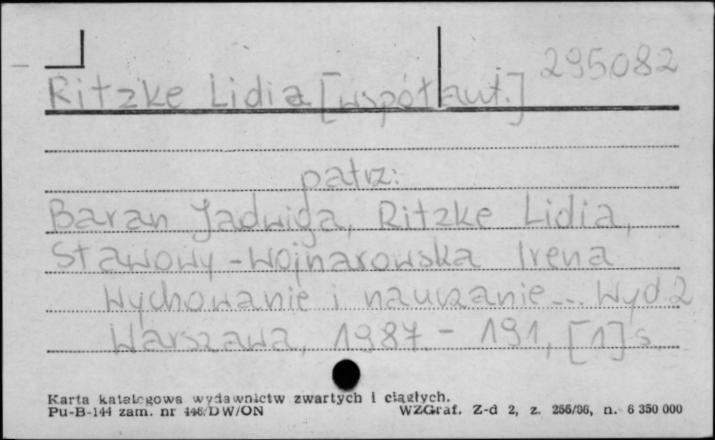 295082
Ritzke Lidia [współaut.]
patrz:
Baran Jadwiga, Ritzke Lidia,
Stawowy-Wojnarowska Irena
Wychowanie i nauczanie... Wyd. 2
Warszawa, 1987. - 191, [1] s.
Karta katalogowa wydawnictw zwartych i ciągłych.
Pu-B-144 zam. nr 446/DW/ON WZGraf. Z-d 2, z. 256/86, n. 6 350 000